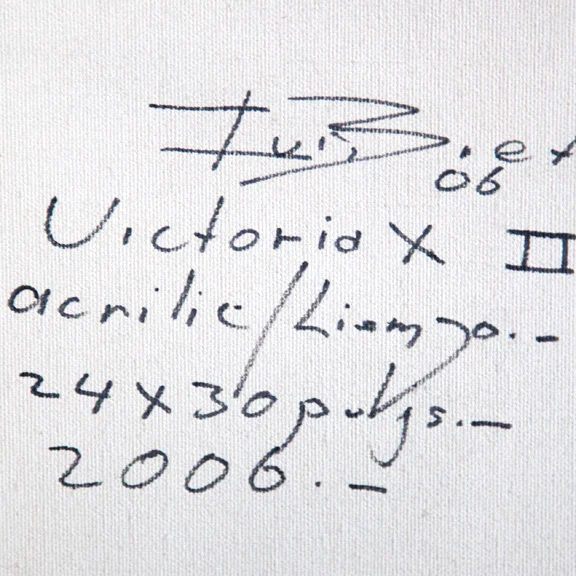 Luis Biet
06
Victoria X II
acrilic/Lienzo.-
24x30 pulgs.-
2006.-